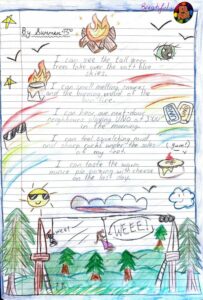 Beautiful
By Summer
I can see the tall green
trees take over the soft blue
skies.
I can smell melting smores,
and the burning wood of the
bonfire.
I can hear our next-door
neighbours playing UNO at
in the morning.
I can feel squelching mud,
and sharp rocks under the soles
of my feet.
(yum!)
I can taste the warm
mince pie parting with cheese
on the last day.
WEEE!